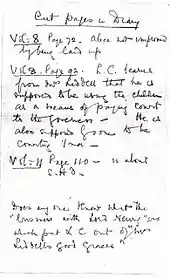 Cut pages in Diary
Vol: 8 Page 72 - Alice not improved
by being laid up
Vol 8. Page 92. L.C. learns
from Mrs Liddell that he is
supposed to be using the children
as a means of paying court
to the governess - He is
also supposed by some to be
courting Ina -
Vol: 11 Page 110 - is about
E.H.D.
Does anyone know what the
"business with Lord Newry" was
which put L C out of Mrs
Liddell's good graces